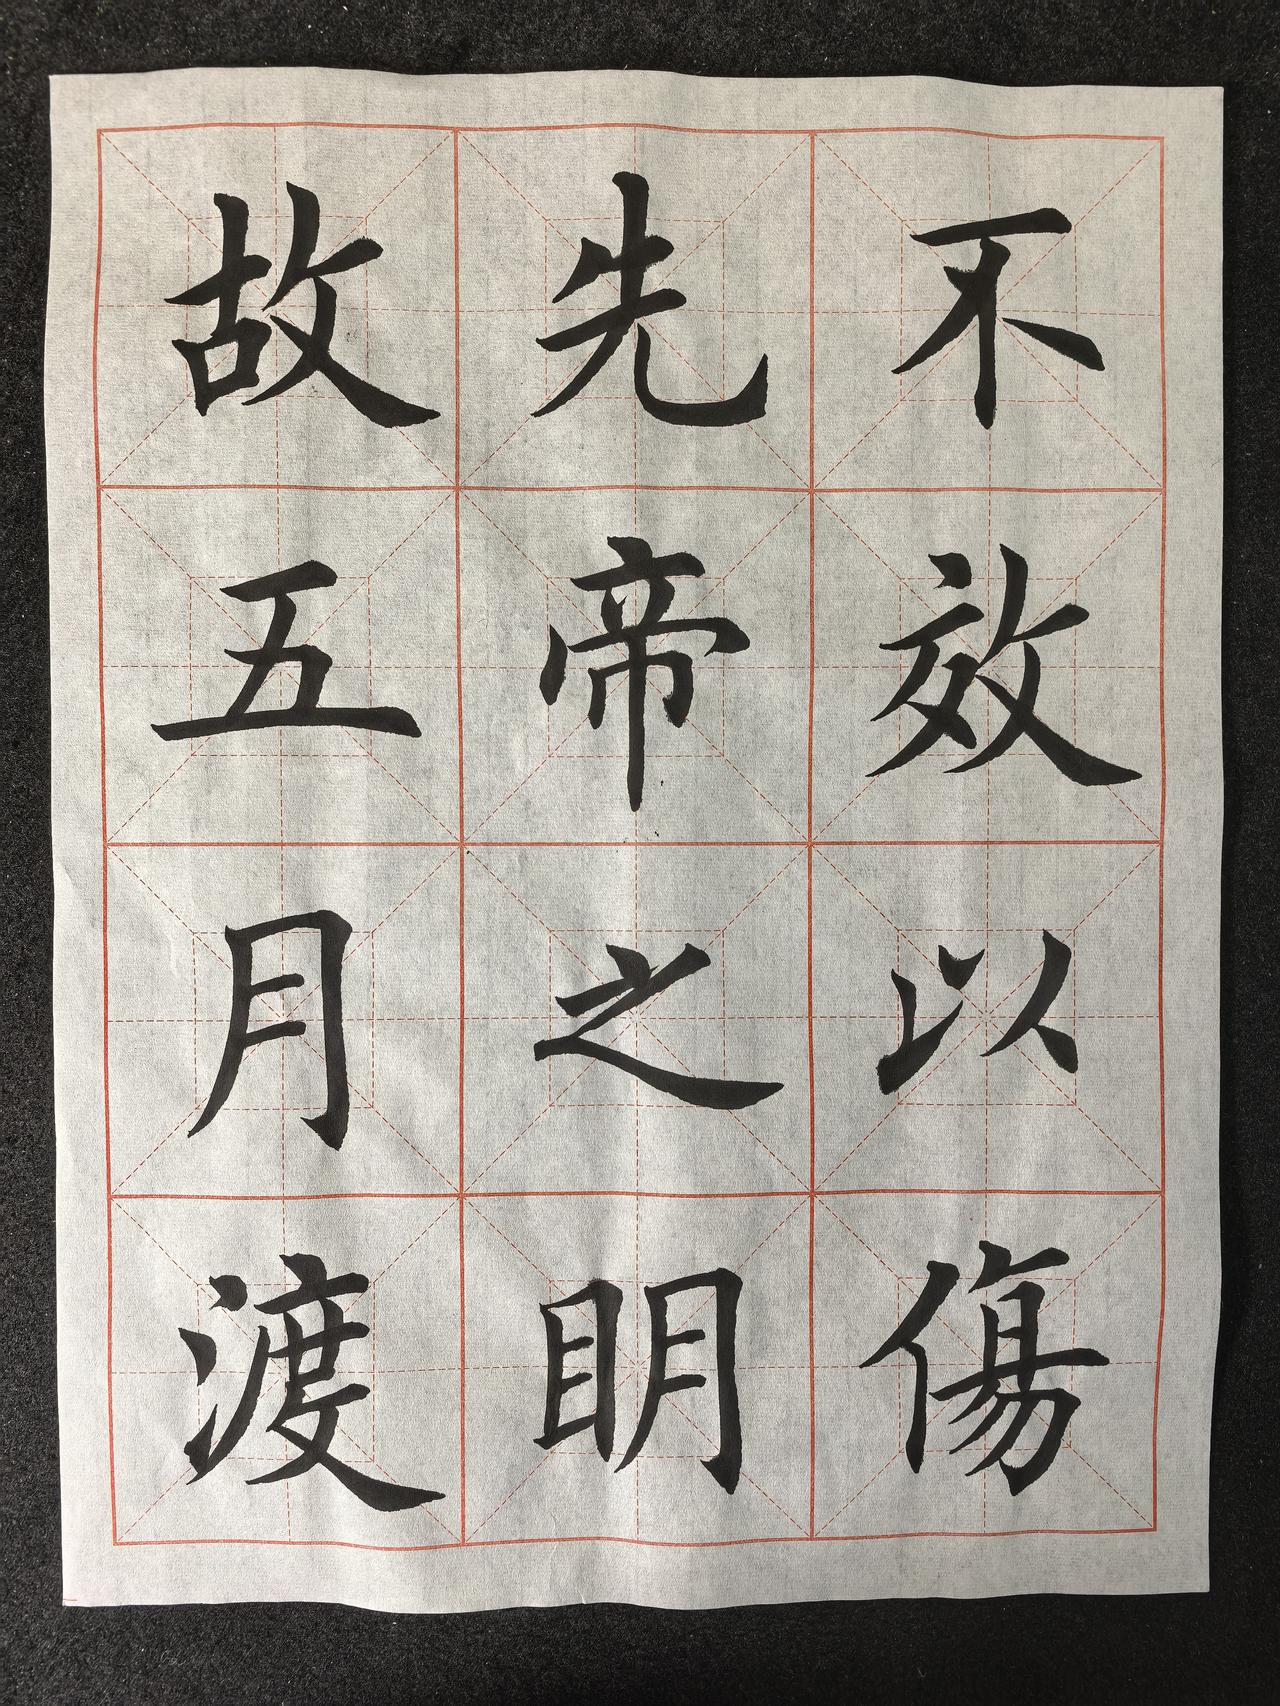 不效以傷
先帝之眀
故五月渡